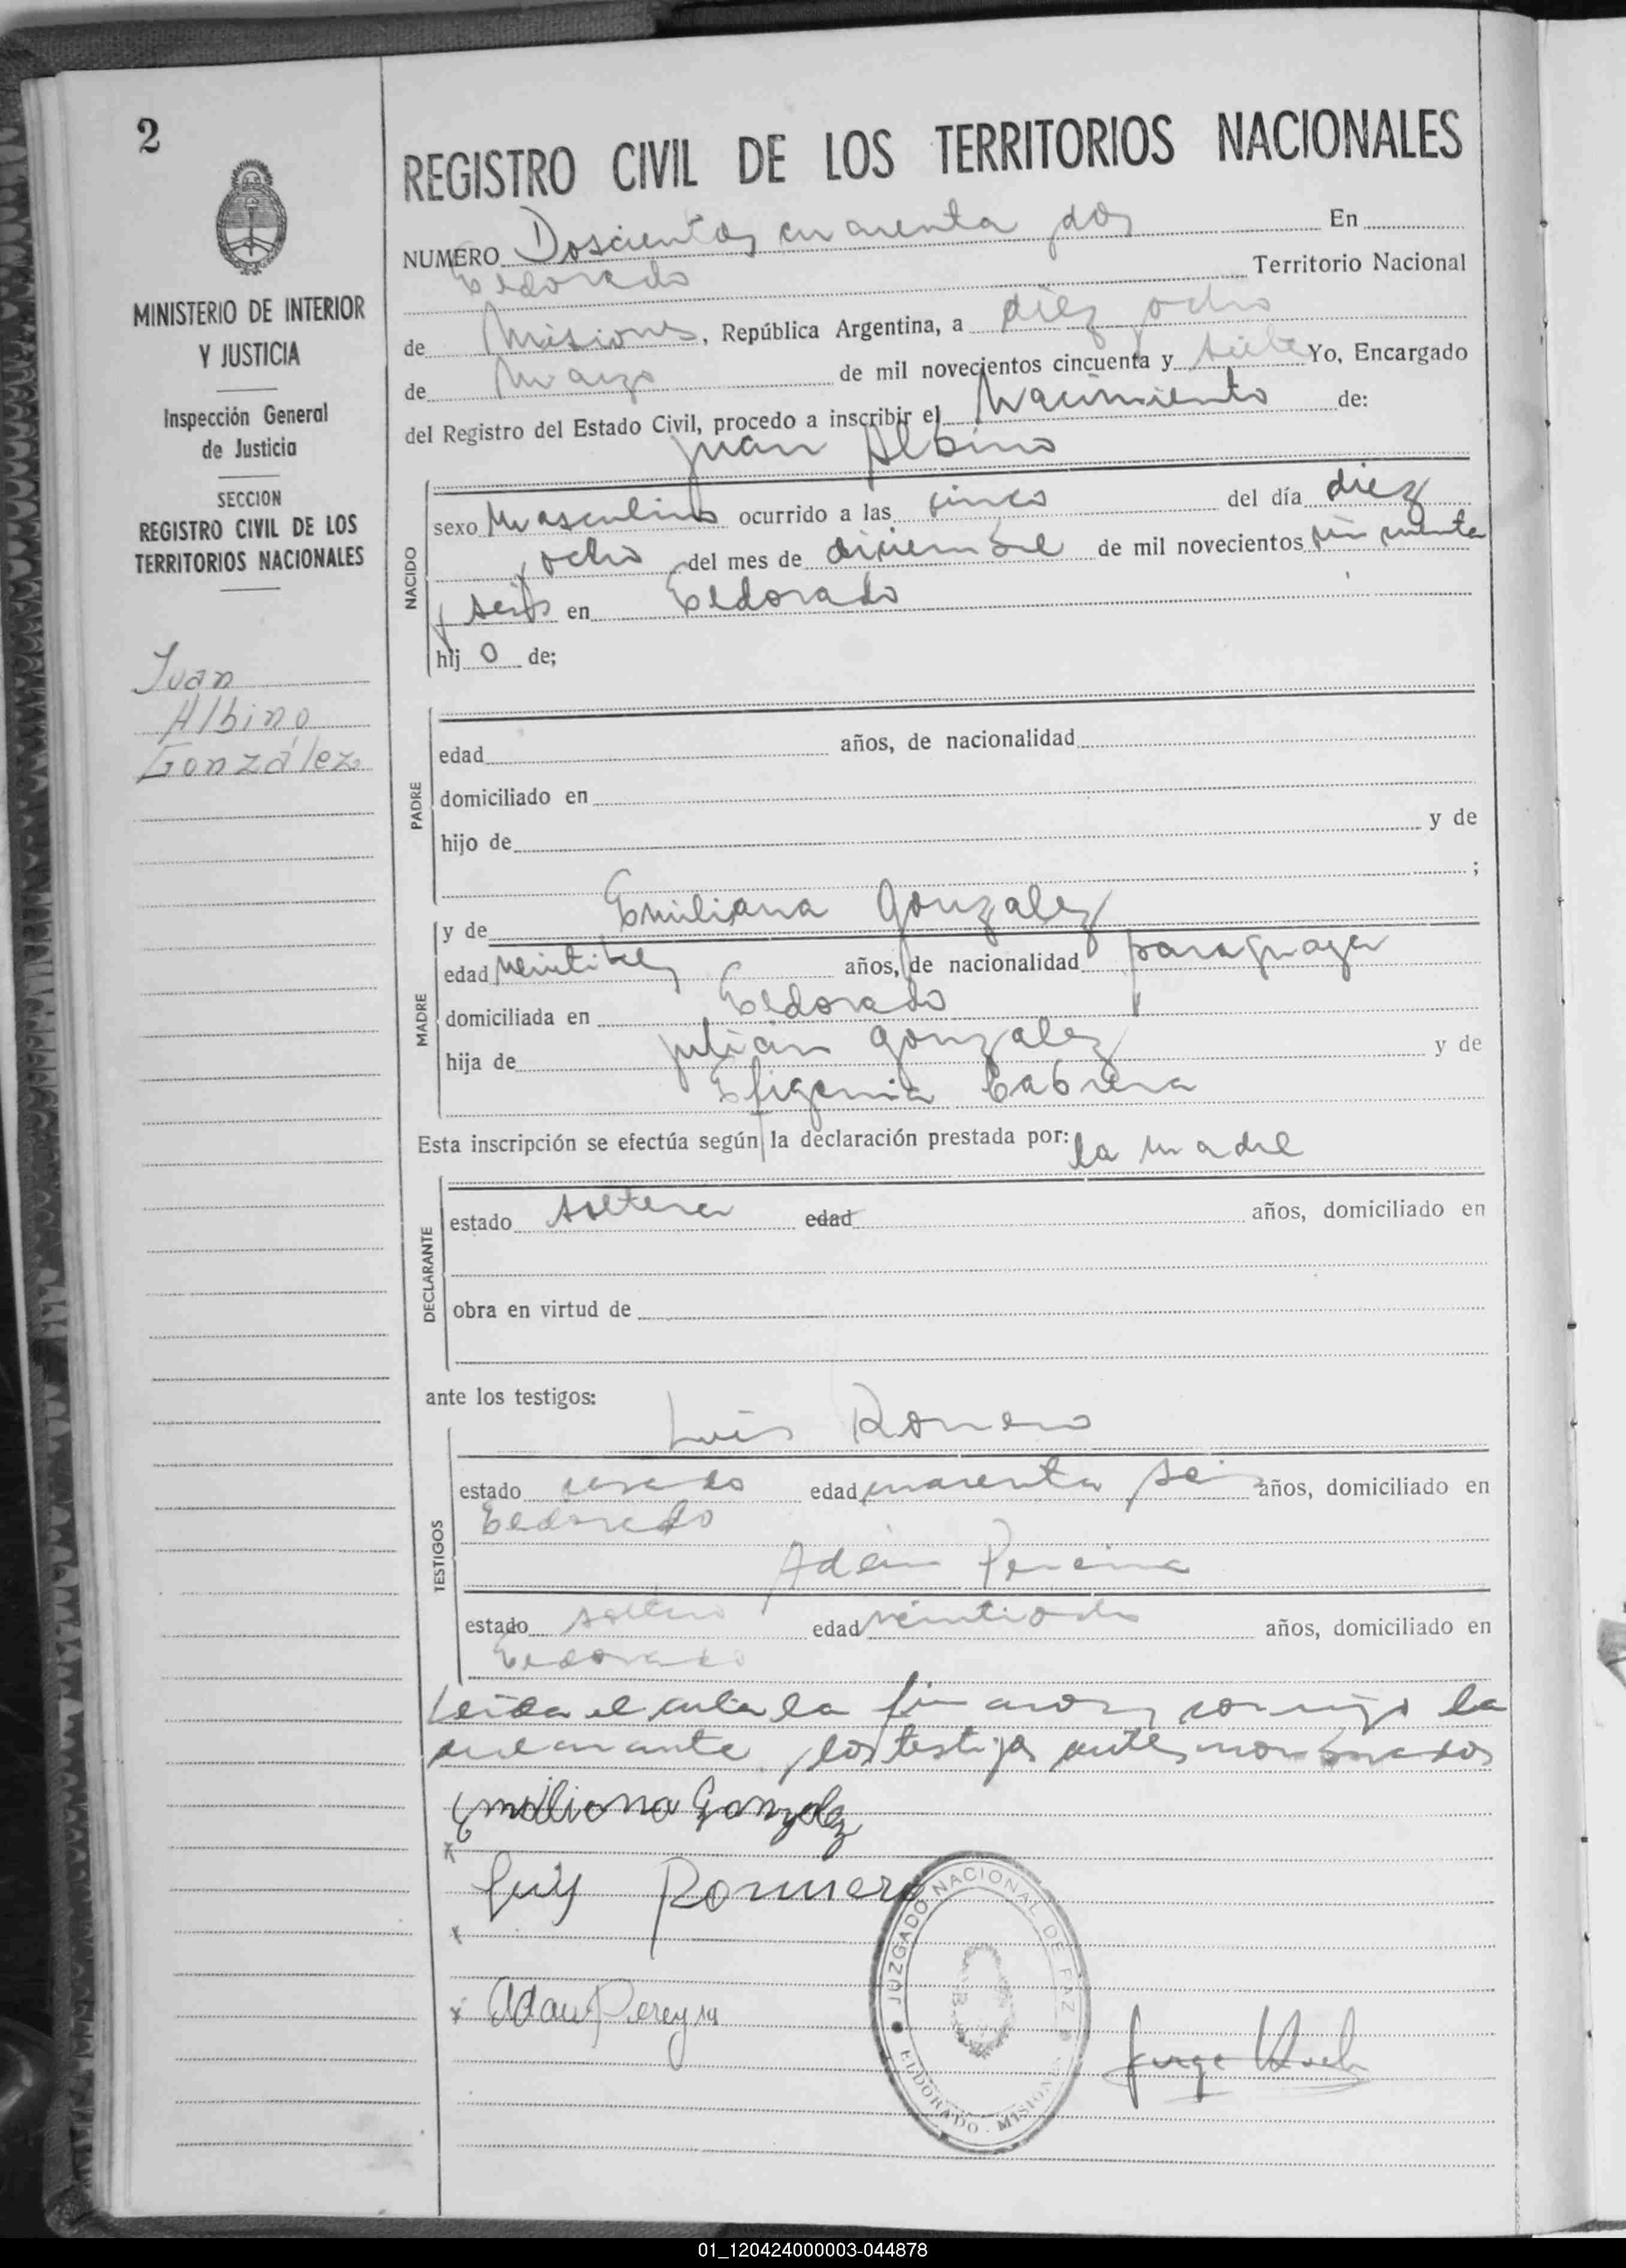 2
MINISTERIO DE INTERIOR
Y JUSTICIA
Inspección General
de Justicia
SECCION
REGISTRO CIVIL DE LOS
TERRITORIOS NACIONALES
Juan
Albino
González
REGISTRO CIVIL DE LOS TERRITORIOS NACIONALES
NUMERO Doscientos cuarenta y dos En
Eldorado Territorio Nacional
de Misiones, República Argentina, a diez y ocho
de Marzo de mil novecientos cincuenta y siete Yo, Encargado
del Registro del Estado Civil, procedo a inscribir el Nacimiento de:
Juan Albino
NACIDO
sexo Masculino ocurrido a las cinco del día diez
y ocho del mes de diciembre de mil novecientos cincuenta
y seis en Eldorado
hij o de;
PADRE
edad años, de nacionalidad
domiciliado en
hijo de y de
;
MADRE
y de Emiliana Gonzalez
edad años, de nacionalidad paraguaya
domiciliada en Eldorado
hija de Julian Gonzalez y de
Efigenia Cabrera
Esta inscripción se efectúa según la declaración prestada por: la madre
DECLARANTE
estado soltera edad años, domiciliado en
obra en virtud de
ante los testigos:
TESTIGOS
Luis Romero
estado casado edad cuarenta y seis años, domiciliado en
Eldorado
Adán Pereira
estado soltero edad veintiocho años, domiciliado en
Eldorado
Leida el acta la firmaron conmigo la
declarante y los testigos antes nombrados
Emiliana Gonzalez
x
Luis Rommero
x
x Adan Pereyra
JUZGADO NACIONAL DE PAZ
ELDORADO - MISIONES
Jorge
01_120424000003-044878